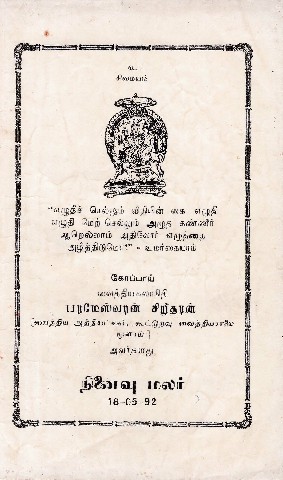 உ
சிவமயம்
"எழுதிச் செல்லும் விதியின் கை எழுதி
எழுதி மேற் செல்லும் அழுத கண்ணீர்
ஆறெல்லாம் அதிலோர் எழுத்தை
அழித்திடுமோ?" - உமர்கையாம்
கோப்பாய்
வைத்தியகலாநிதி
பரமேஸ்வரன் சிறிதரன்
(வைத்திய அத்தியட்சகர், கூட்டுறவு வைத்தியசாலை
மூளாய்)
அவர்களது
நினைவு மலர்
18-05-92